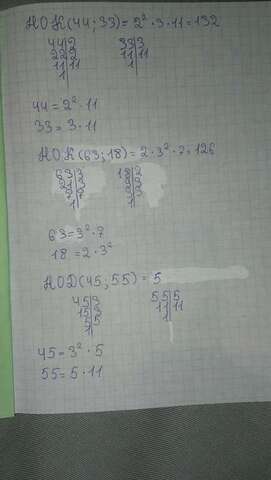 НОК(44; 33) = 2² · 3 · 11 = 132
44|2 33|3
22|2 11|11
11|11 1|
1|
44 = 2² · 11
33 = 3 · 11
НОК(63; 18) = 2 · 3² · 7 = 126
63|3 18|2
21|3 9|3
7|7 3|3
1| 1|
63 = 3² · 7
18 = 2 · 3²
НОД(45; 55) = 5
45|3 55|5
15|3 11|11
5|5 1|
1|
45 = 3² · 5
55 = 5 · 11